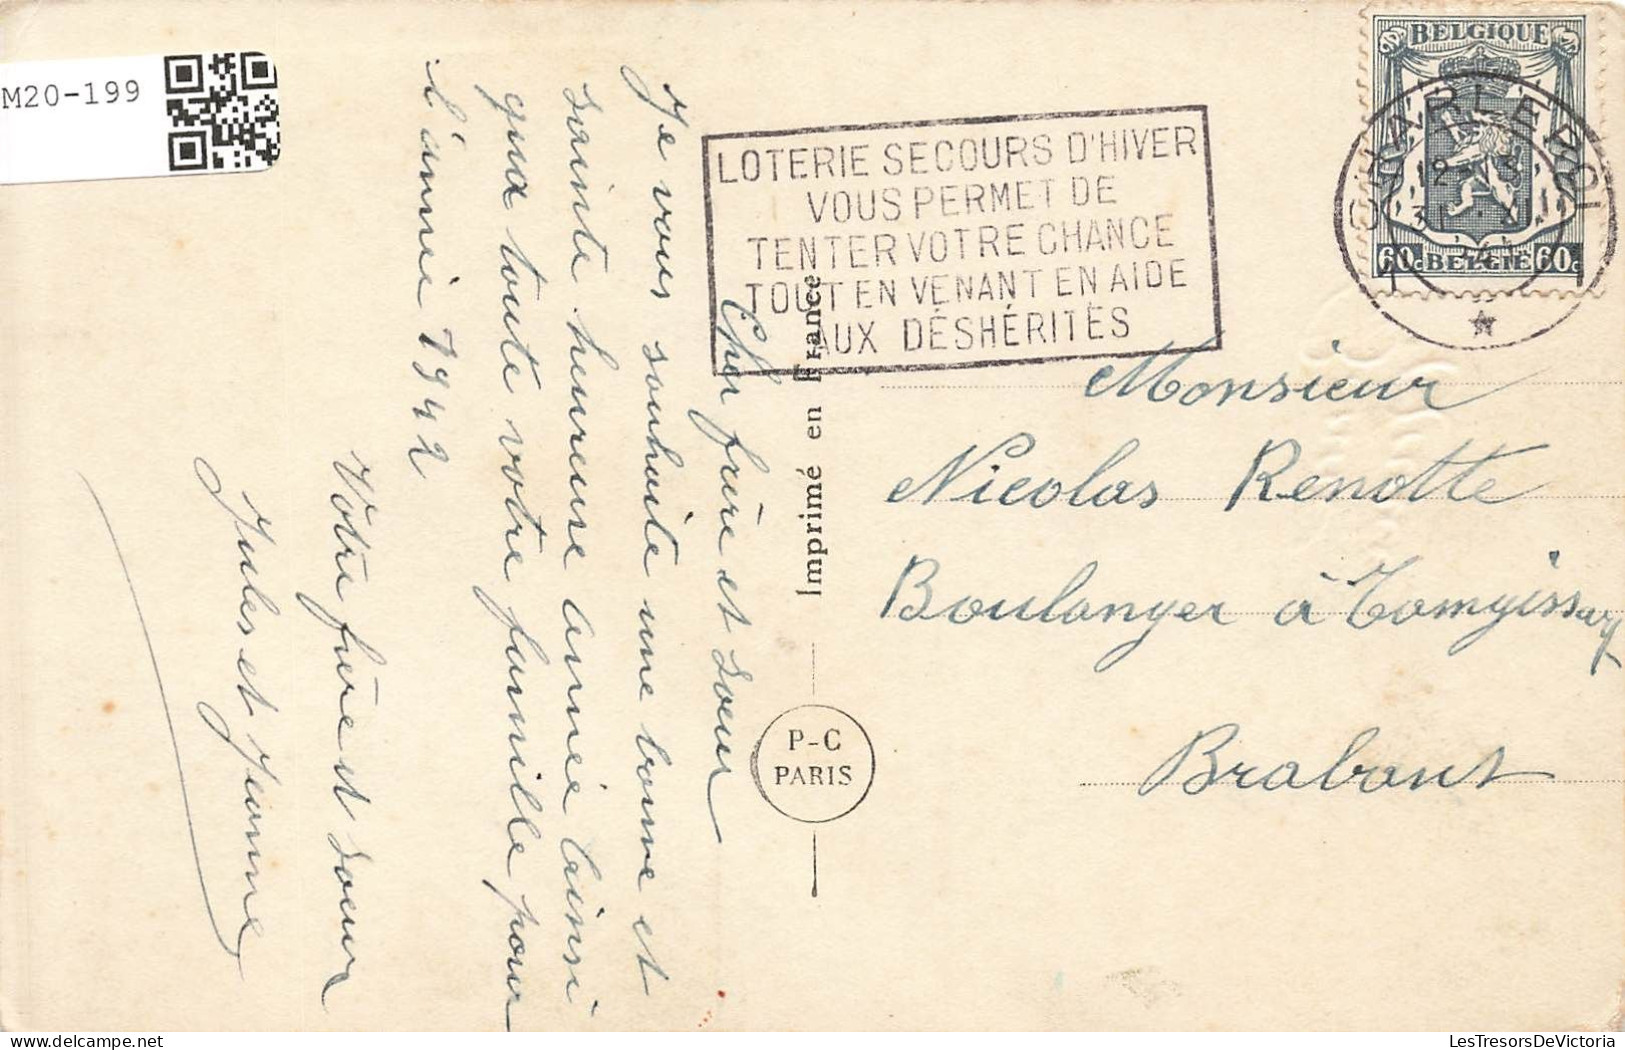 M20-199
BELGIQUE
60c BELGIË 60c
CHARLEROI
LOTERIE SECOURS D'HIVER
VOUS PERMET DE
TENTER VOTRE CHANCE
TOUT EN VENANT EN AIDE
AUX DÉSHÉRITÉS
Cher frère et soeur
Je vous souhaite une bonne et
sainte heureuse année ainsi
qua toute votre famille pour
l'année 1942
Votre frère et soeur
Jules et Jeanne
Imprimé en France
P-C
PARIS
Monsieur
Nicolas Renotte
Boulanger à
Brabant
LesTresorsDeVictoria.com